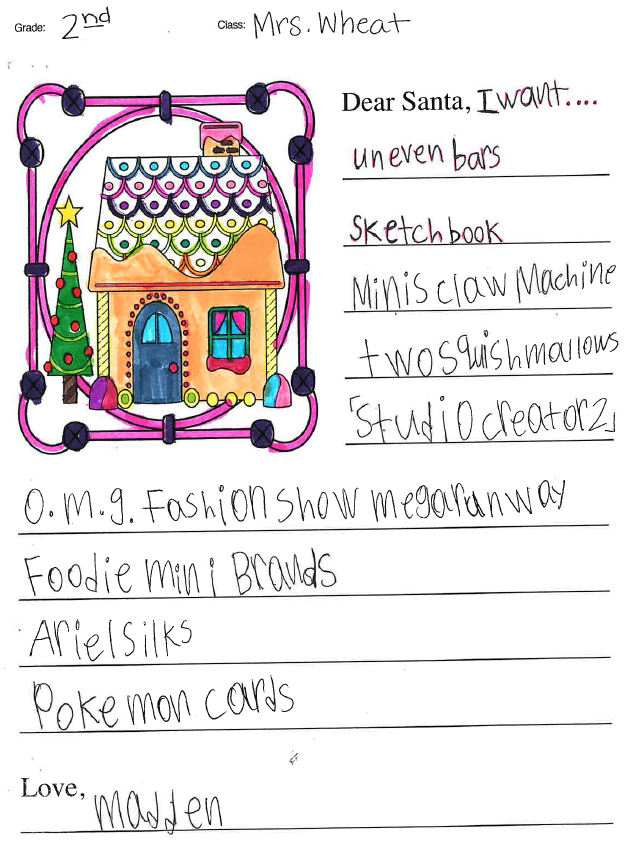 Grade: 2nd Class: Mrs. Wheat
Dear Santa, I want....
uneven bars
sketchbook
Minis claw Machine
two squishmallows
「Studio creator 2」
O.M.g. Fashion show megarunway
Foodie mini Brands
Ariel silks
Pokemon cards
Love, madden